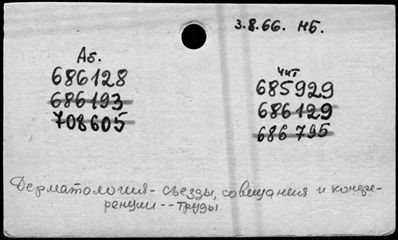 3.8.66. НБ.
Аб.
686128
686193
708605
Чит
685929
686129
686795
Дерматология - съезды, совещания и конфе-
ренции -- труды